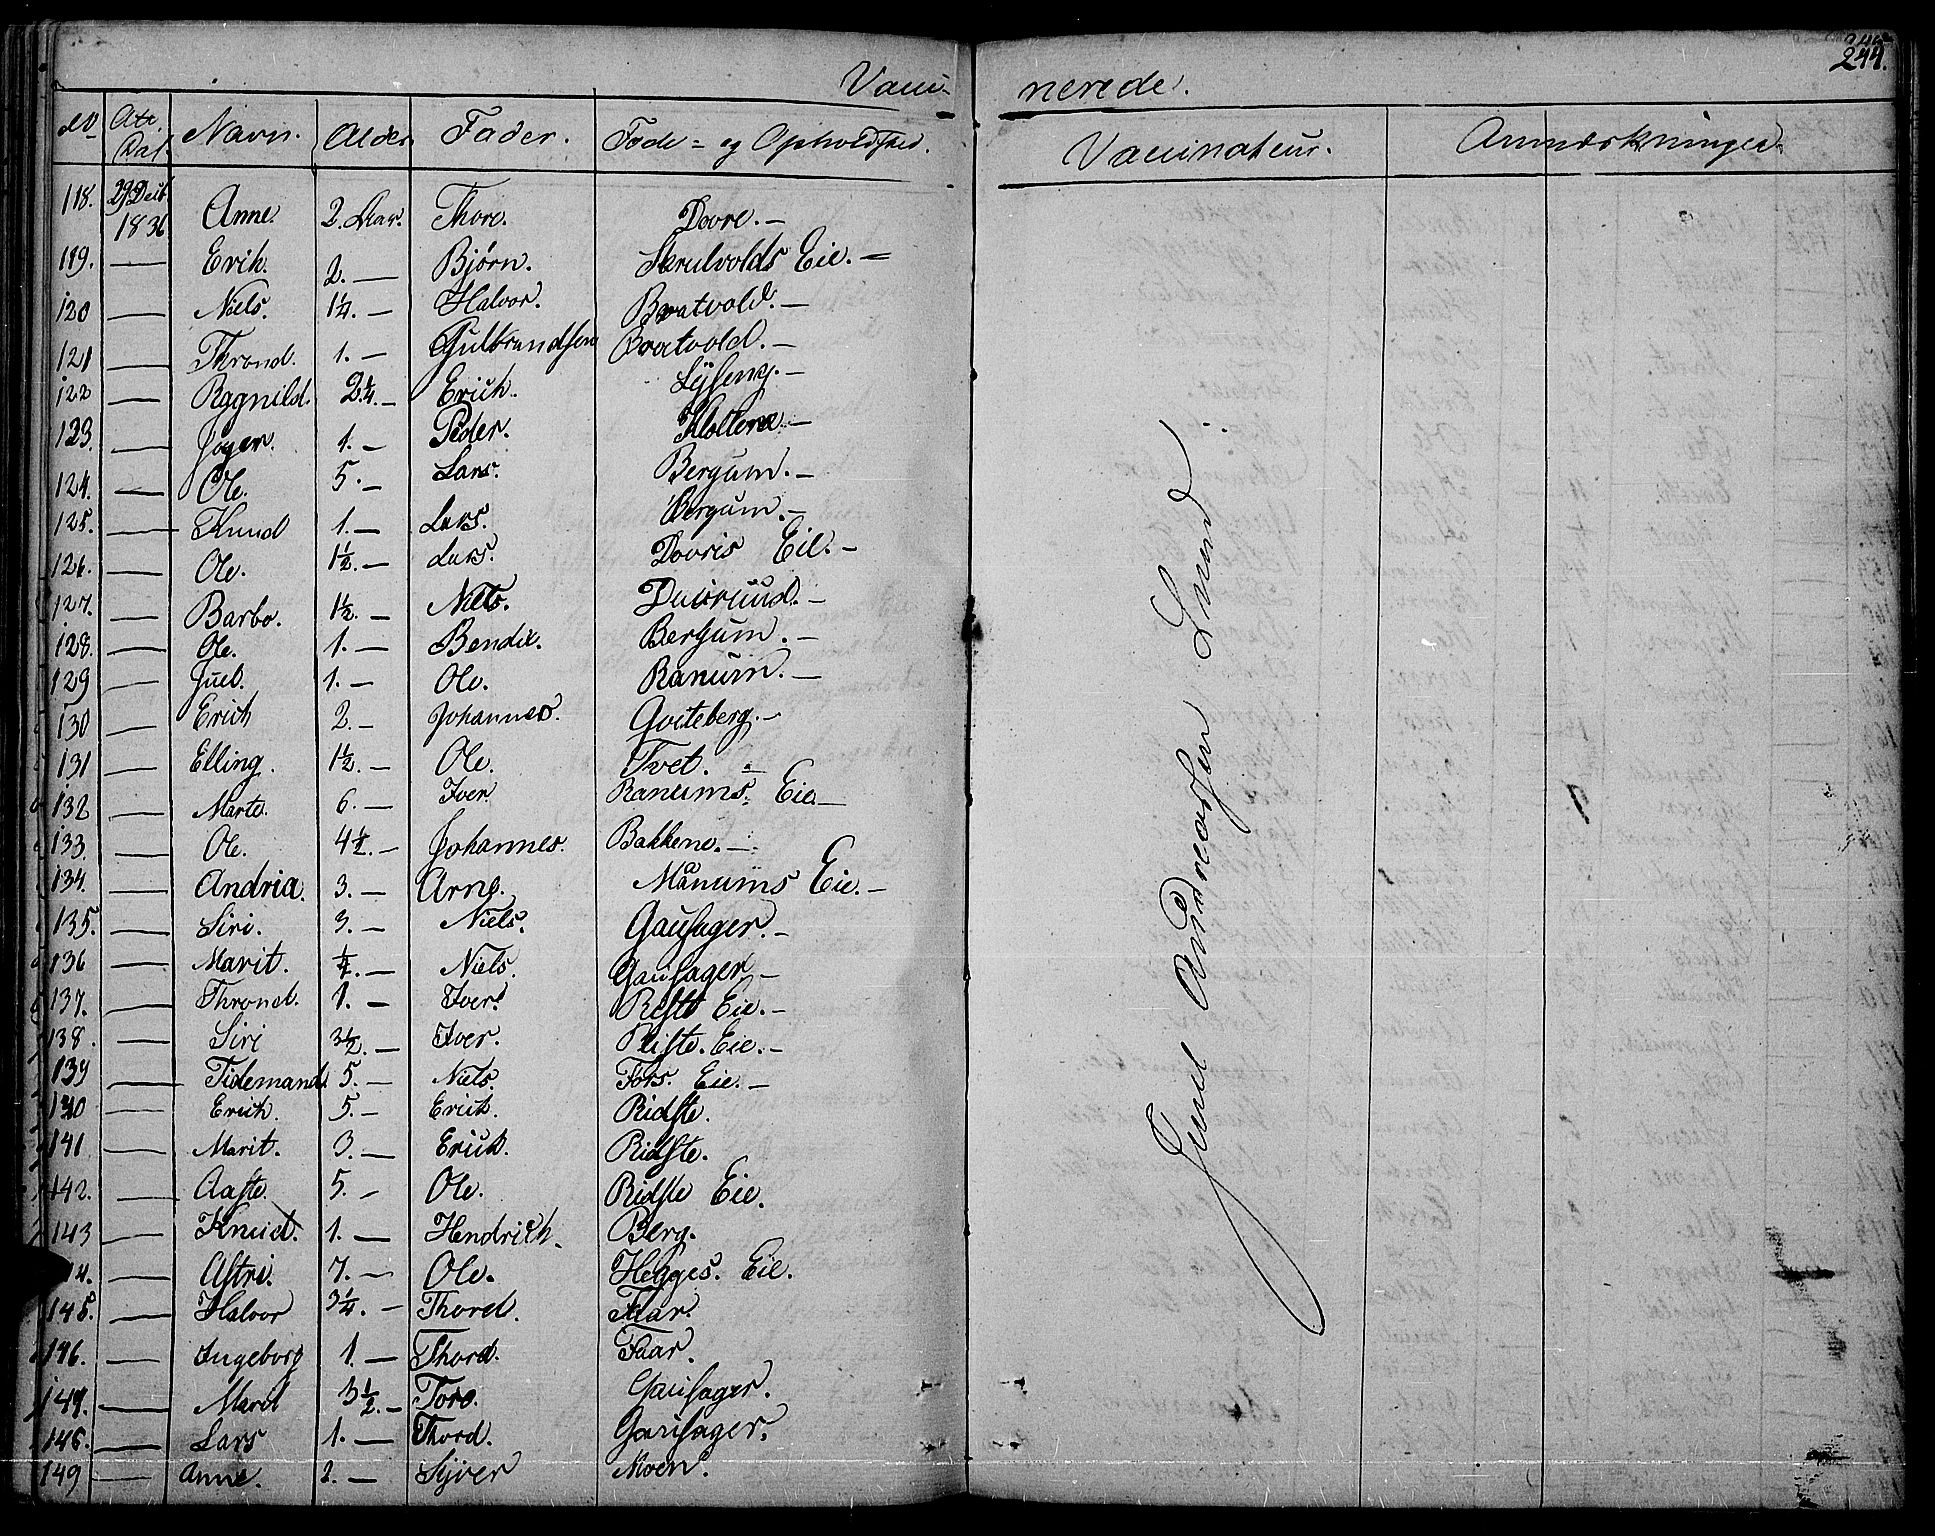 244.
Vacci- nerede.
No Att. Dat. Navn. Alder Fader. Føde- og Opholdsted. Vaccinateur. Anmærkninger.
118. 29 Decb 1836 Anne. 2. Aar. Thore. Dovre.-
119. — Erik. 2. — Bjørn. Skrulvolds Eie.-
120 — Niels. 1¼. — Halvor. Bratvold.-
121 — Thrond. 1. — Gulbrandsen Bratvold.-
122 — Ragnild. 2¼. — Erich.
123. — 1. — Peder.
124. — Ole. 5. — Lars. Bergum.-
125. — Knud 1. — Lars. Bergum.-
126. — Ole. 1½. — Lars. Dovris Eie.-
127. — Barbo. 1½. — Niels.
128. — Ole. 1. — Bendix. Bergum.-
129 — Juel. 1. — Ole. Ranum.-
130 — Erich 2. — Johannes. Goeteberg.-
131 — Elling. 1½. — Ole. Tvet. -
132 — Marte. 6. — Iver. Ranums. Eie.-
133. — Ole. 4½. — Johannes. Bakkene.-
134. — Andria. 3. — Arne. Månums Eie.-
135. — Siri. 3. — Niels. Gausager.-
136 — Marit. ¼. — Niels. Gausager-
137. — Thrond. 1. — Iver. Riste Eie.-
138. — Siri 3½. — Iver. Riste. Eie.-
139 — Tidemand. 5. — Niels. Fors. Eie.-
140 — Erich. 5. — Erich. Ridste.
141 — Marit. 3. — Erich. Ridste.
142. — Aaste. 5. — Ole. Ridste Eie.
143 — Knud. 1. — Hendrich. Berg.
— Astri. 7. — Ole. Hegges. Eie.
145. — Halvor 3¼. — Thord.
146. — Ingeborg 1. — Thord. Faar.
147. — Marit 3½. — Tore. Gausager.
148. — Lars 1. — Thord. Gausager.
149 — Anne. 2. — Syver Moen.
Juul Andreassen Lund